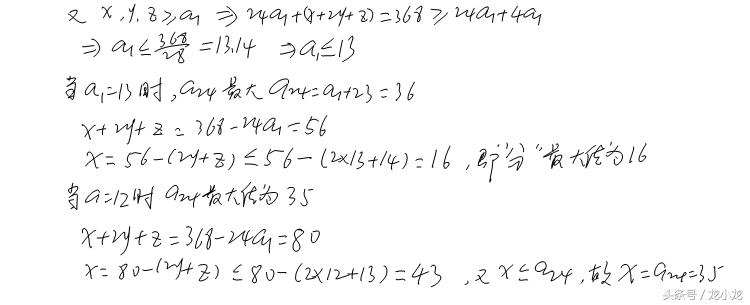 又 x,y,z≥a₁ ⇒ 24a₁+(x+2y+z)=368≥24a₁+4a₁
⇒ a₁≤368/28=13.14 ⇒a₁≤13
当a₁=13时,a₂₄最大 a₂₄=a₁+23=36
x+2y+z=368-24a₁=56
x=56-(2y+z)≤56-(2×13+14)=16,即"分"最大值为16
当a=12时 a₂₄最大值为35
x+2y+z=368-24a₁=80
x=80-(2y+z)≤80-(2×12+13)=43,又x≤a₂₄,故x=a₂₄=35
头条号/龙小龙